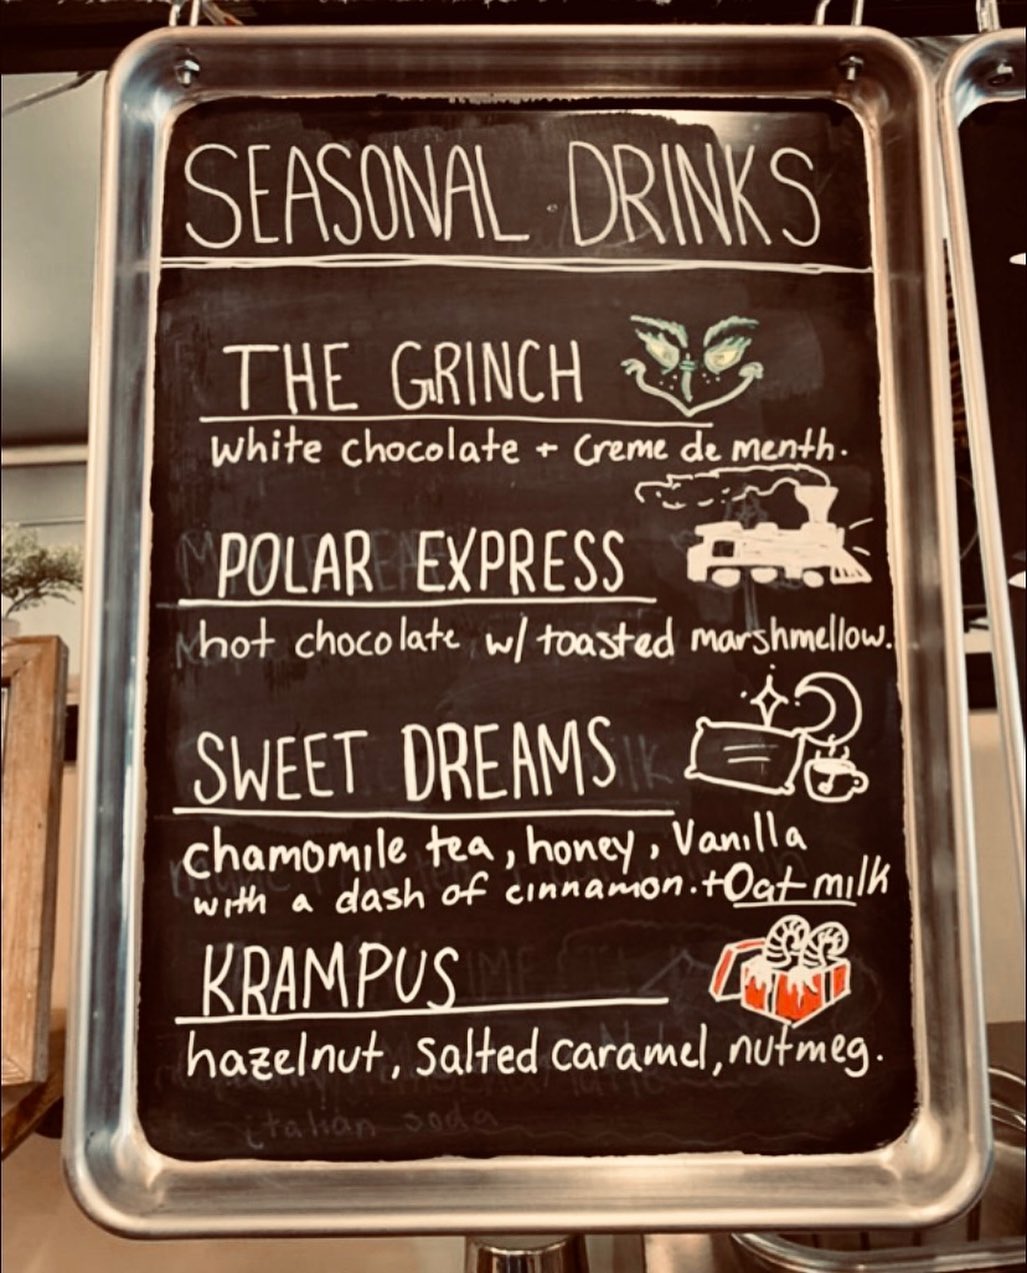 SEASONAL DRINKS
THE GRINCH
white chocolate + Creme de menth.
POLAR EXPRESS
hot chocolate w/ toasted marshmellow.
SWEET DREAMS
chamomile tea, honey, Vanilla
with a dash of cinnamon. + Oat milk
KRAMPUS
hazelnut, Salted caramel, nutmeg.
italian soda